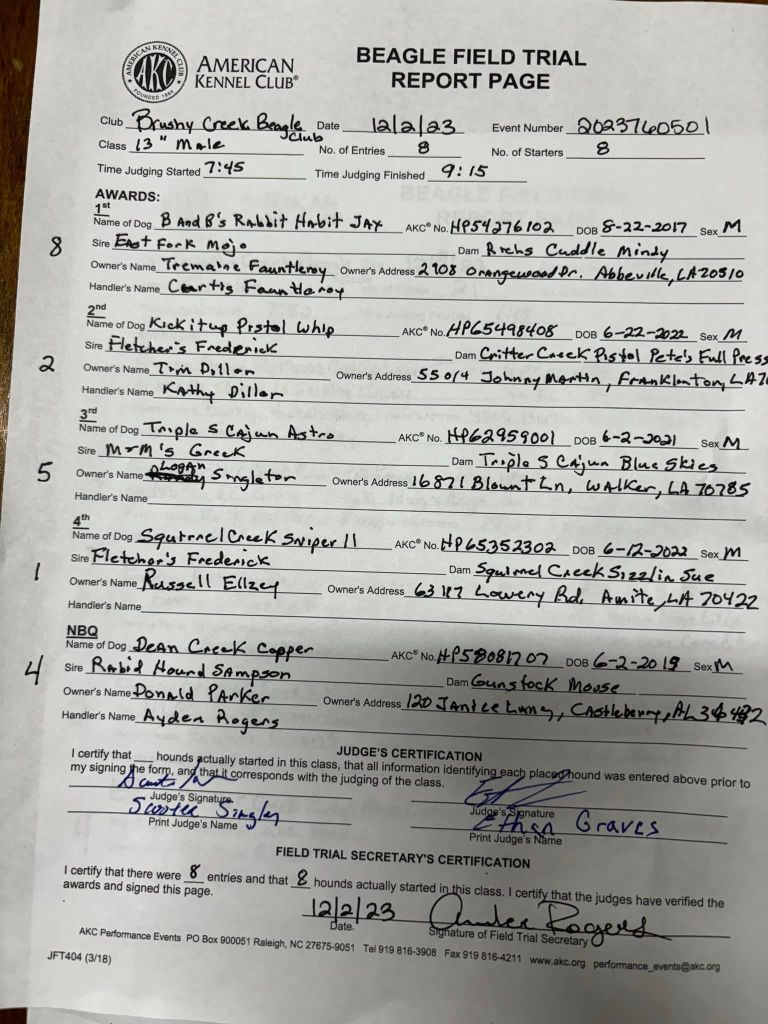 AMERICAN KENNEL CLUB FOUNDED 1884 AKC
AMERICAN KENNEL CLUB®
BEAGLE FIELD TRIAL
REPORT PAGE
Club Brushy Creek Beagle Club Date 12/2/23 Event Number 2023760501
Class 13" Male No. of Entries 8 No. of Starters 8
Time Judging Started 7:45 Time Judging Finished 9:15
AWARDS:
1st
Name of Dog B And B's Rabbit Habit JAX AKC® No. HP54276102 DOB 8-22-2017 Sex M
8 Sire East Fork Mojo Dam Richs Cuddle Mindy
Owner's Name Tremaine Fauntleroy Owner's Address 2908 Orangewood Dr. Abbeville, LA 20510
Handler's Name Curtis Fauntleroy
2nd
Name of Dog Kickitup Pistol Whip AKC® No. HP65498408 DOB 6-22-2022 Sex M
Sire Fletcher's Frederick Dam Critter Creek Pistol Pete's Full Press
2 Owner's Name Tim Dillon Owner's Address 55014 Johnny Martin, Franklinton, LA
Handler's Name Kathy Dillon
3rd
Name of Dog Triple S Cajun Astro AKC® No. HP62959001 DOB 6-2-2021 Sex M
Sire M+M's Greek Dam Triple S Cajun Blue Skies
5 Owner's Name Logan Singleton Owner's Address 16871 Blount Ln, Walker, LA 70785
Handler's Name
4th
Name of Dog Squirrel Creek Sniper II AKC® No. HP65352302 DOB 6-12-2022 Sex M
1 Sire Fletcher's Frederick Dam Squirrel Creek Sizzlin Sue
Owner's Name Russell Ellzey Owner's Address Lowery Rd, Amite, LA 70422
Handler's Name
NBQ
Name of Dog Dean Creek Copper AKC® No. HP58081207 DOB 6-2-2019 Sex M
4 Sire Rabid Hound Sampson Dam Gunstock Moose
Owner's Name Donald Parker Owner's Address 120 Janice Lane, Castleberry, AL
Handler's Name Ayden Rogers
JUDGE'S CERTIFICATION
I certify that ___ hounds actually started in this class, that all information identifying each placed hound was entered above prior to
my signing the form, and that it corresponds with the judging of the class.
Judge's Signature Judge's Signature
Scooter Singley Ethan Graves
Print Judge's Name Print Judge's Name
FIELD TRIAL SECRETARY'S CERTIFICATION
I certify that there were 8 entries and that 8 hounds actually started in this class. I certify that the judges have verified the
awards and signed this page.
12/2/23 Rogers
Date. Signature of Field Trial Secretary
AKC Performance Events PO Box 900051 Raleigh, NC 27675-9051 Tel 919 816-3908 Fax 919 816-4211 www.akc.org performance_events@akc.org
JFT404 (3/18)